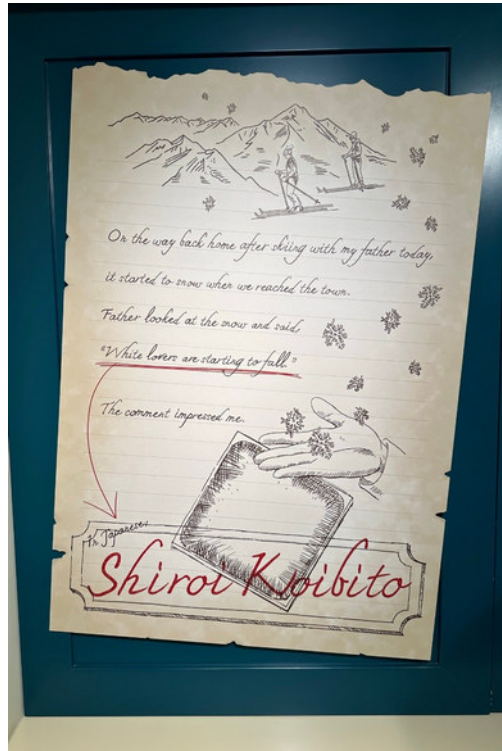 On the way back home after skiing with my father today,
it started to snow when we reached the town.
Father looked at the snow and said,
"White lovers are starting to fall."
The comment impressed me.
In Japanese,
Shiroi Koibito